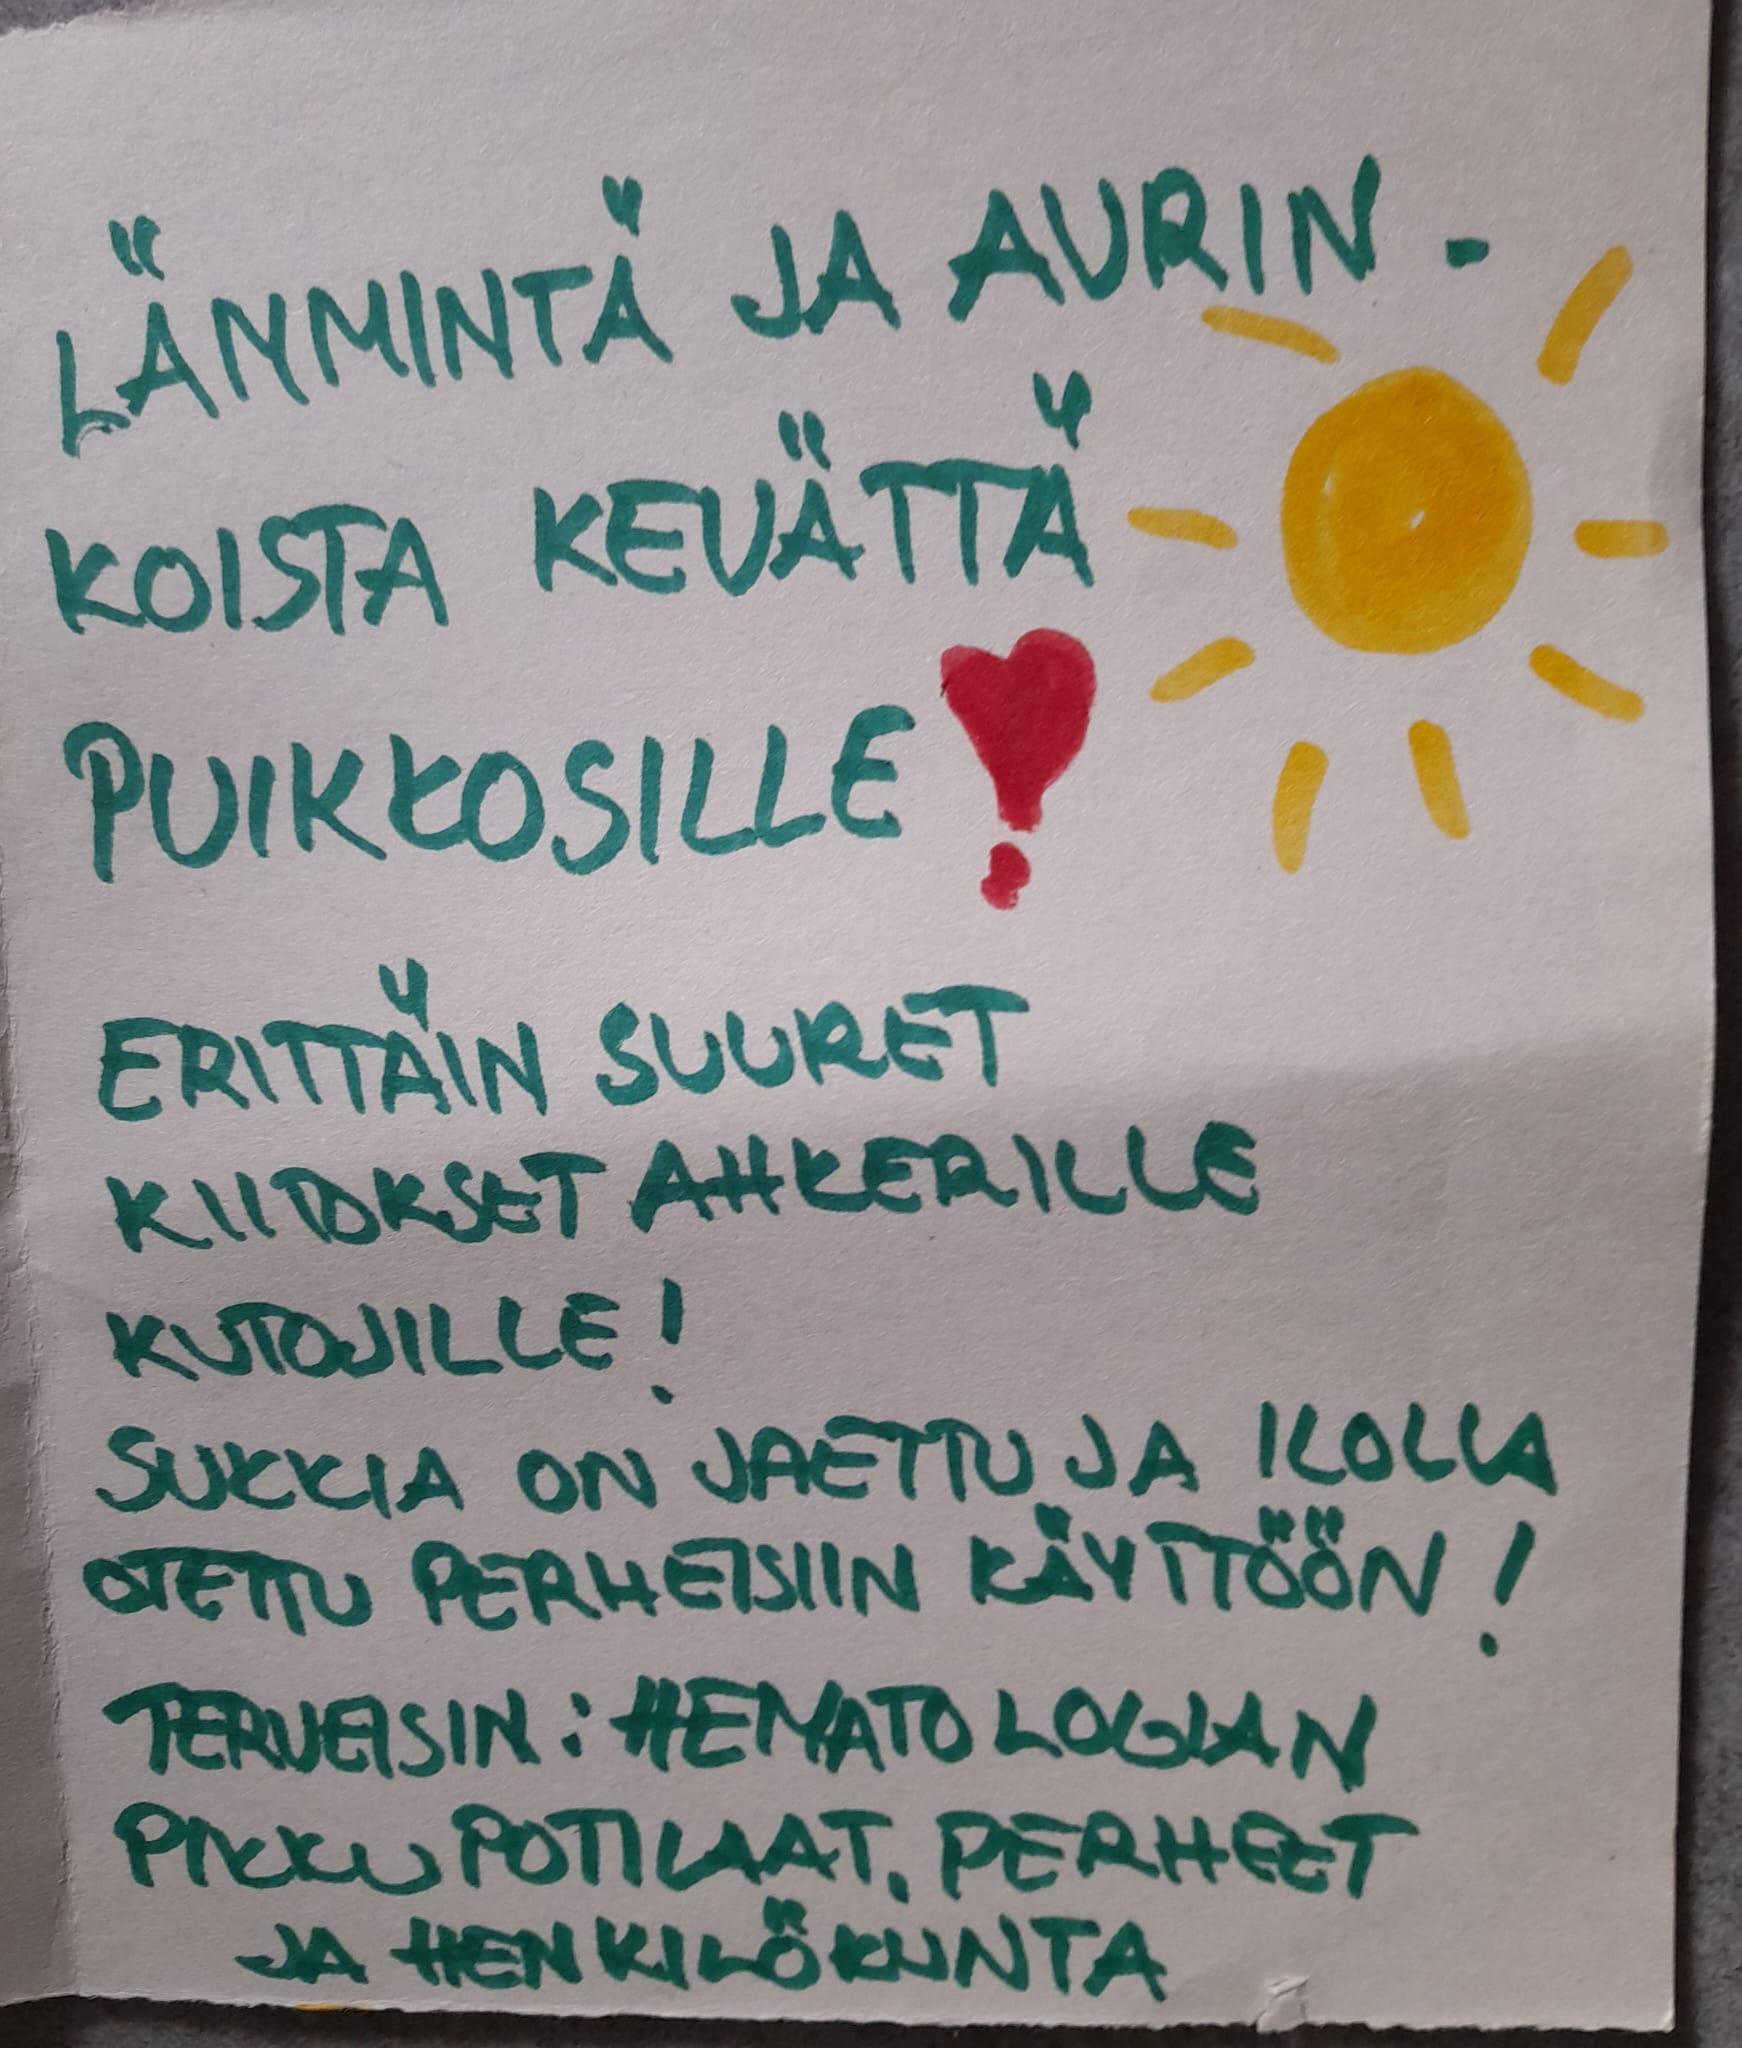 LÄMMINTÄ JA AURIN-
KOISTA KEVÄTTÄ
PUIKKOSILLE!
ERITTÄIN SUURET
KIITOKSET AHKERILLE
KUTOJILLE!
SUKKIA ON JAETTU JA ILOLLA
OTETTU PERHEISIIN KÄYTTÖÖN!
TERVEISIN: HEMATOLOGIAN
PIKKUPOTILAAT, PERHEET
JA HENKILÖKUNTA